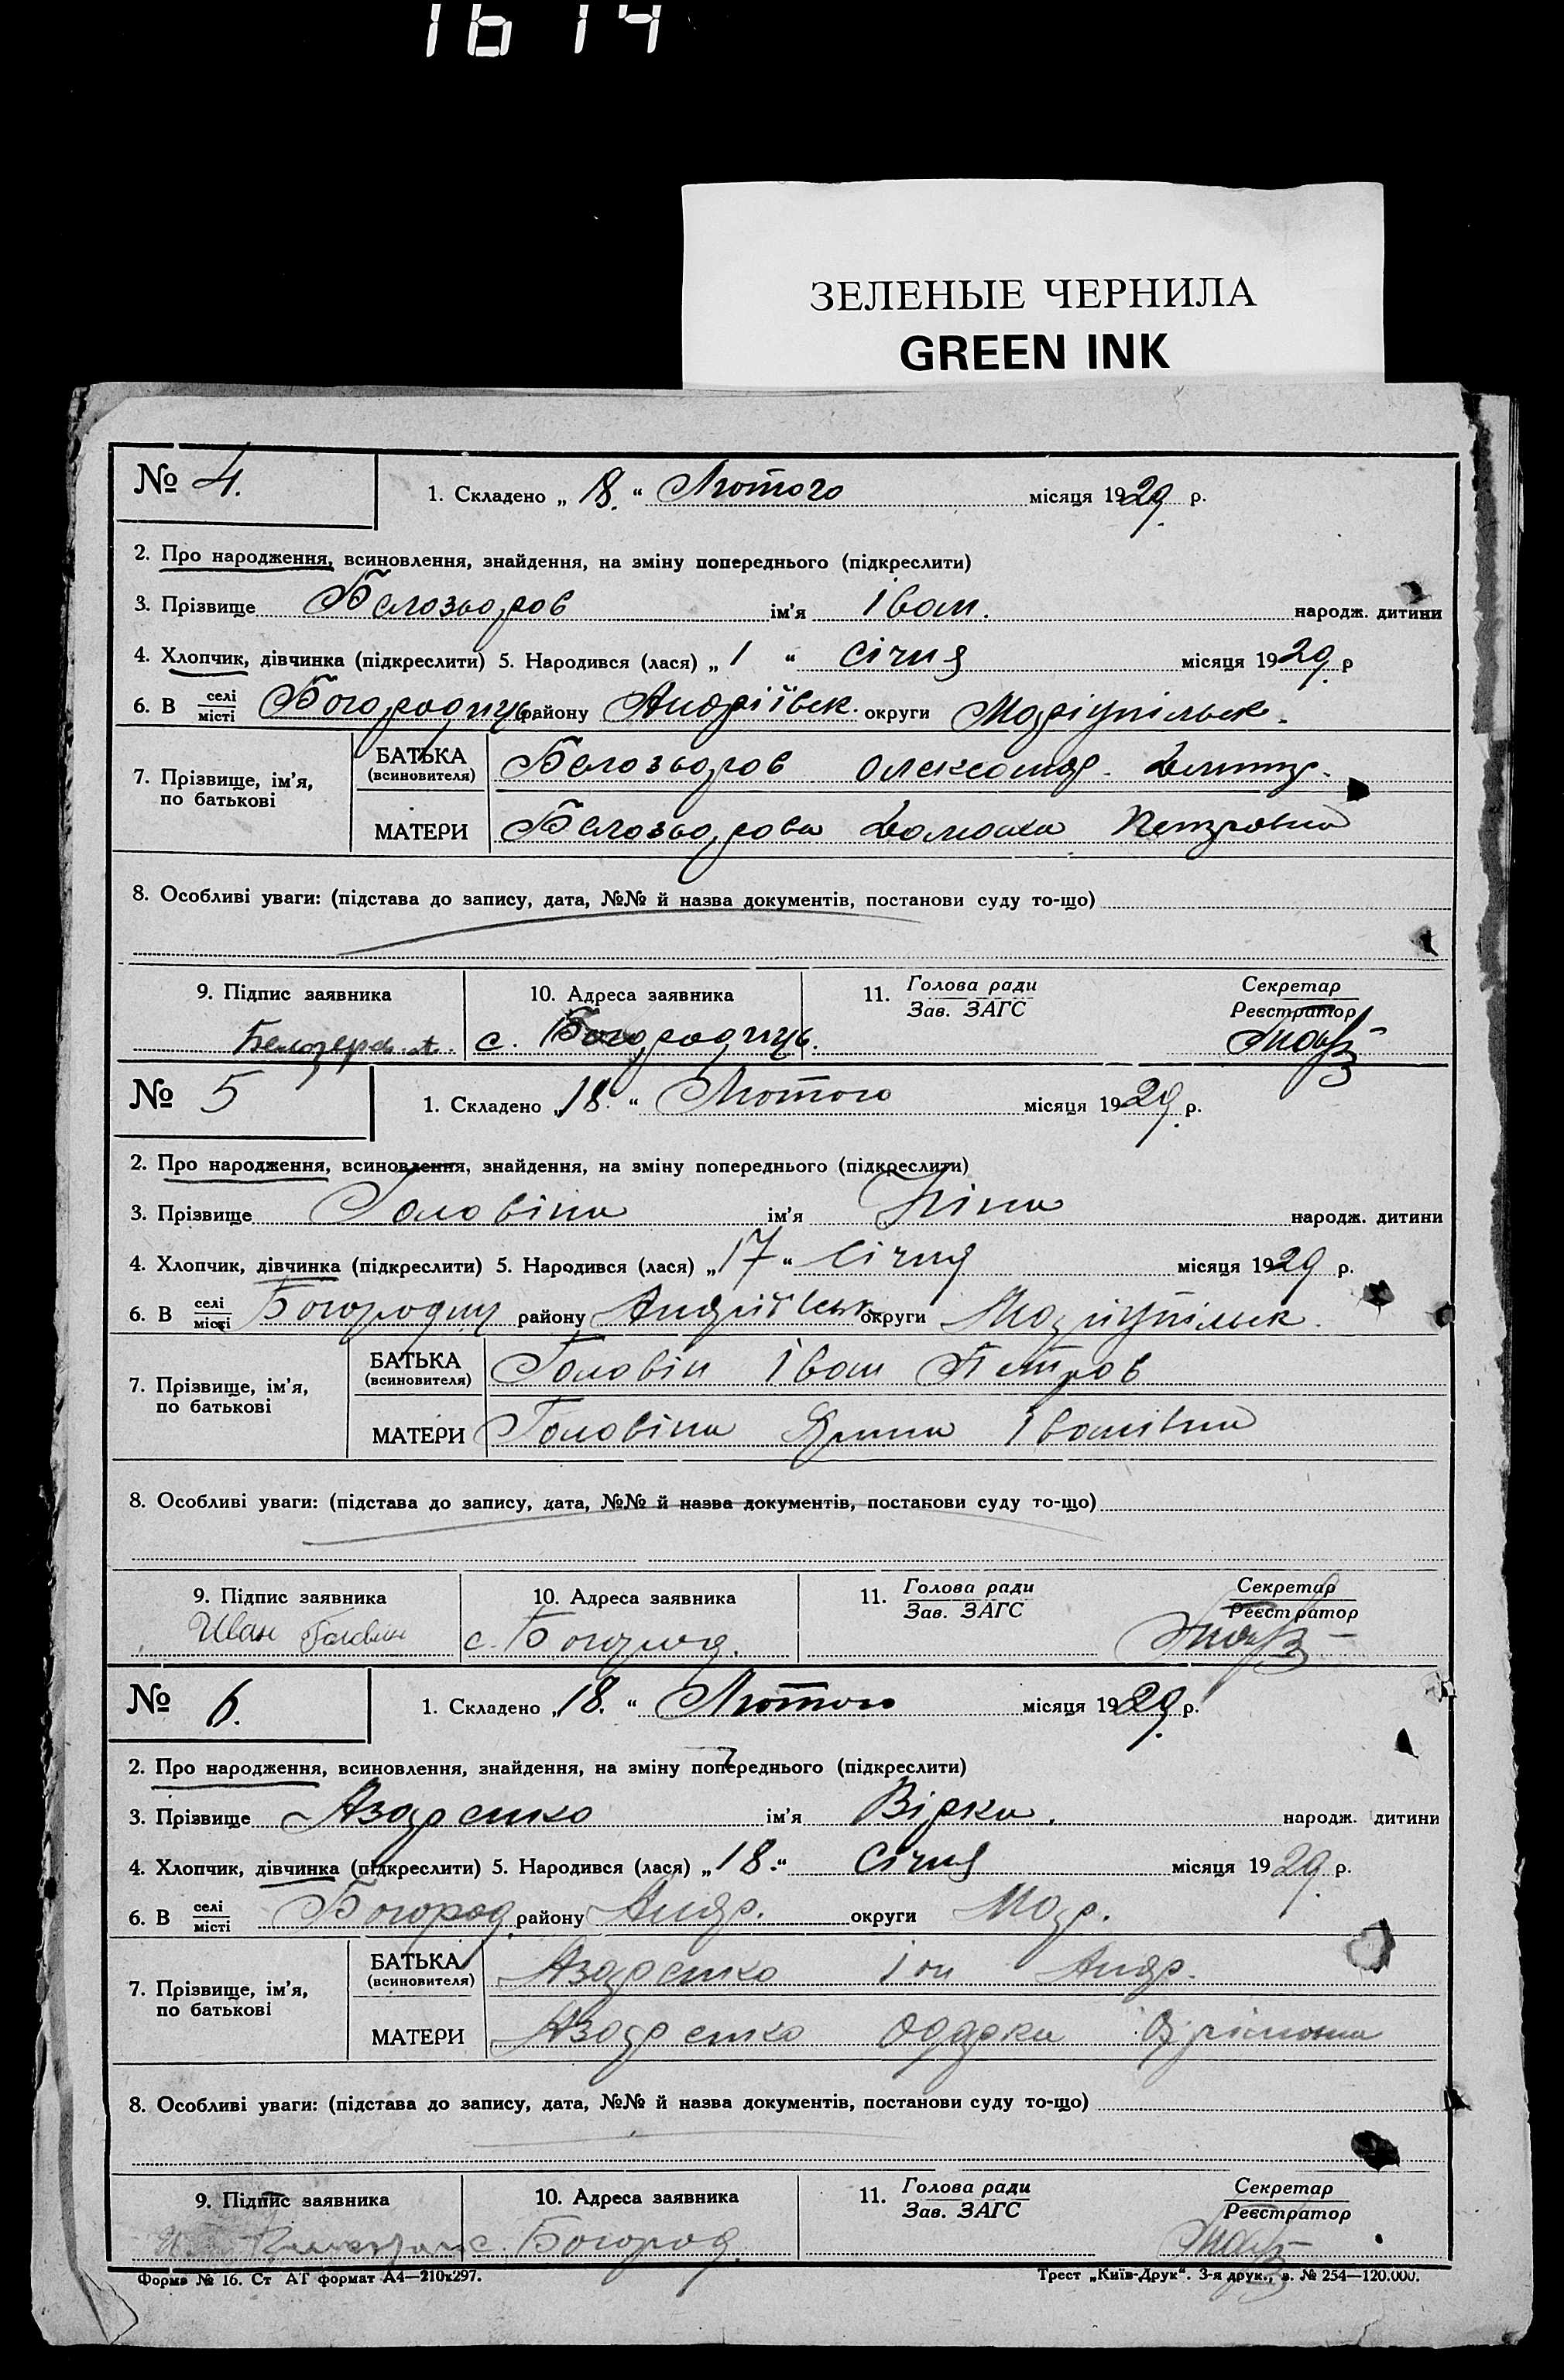 1614
ЗЕЛЕНЫЕ ЧЕРНИЛА
GREEN INK
№ 4. 1. Складено „ 18. “ Лютого місяця 1929 р.
2. Про народження, всиновлення, знайдення, на зміну попереднього (підкреслити)
3. Прізвище Белозьоров ім’я Іван. народж. дитини
4. Хлопчик, дівчинка (підкреслити) 5. Народився (лася) „ 1 “ січня місяця 1929. р
6. В селі Богородиць. району Андріївськ. округи Маріупільськ.
місті
7. Прізвище, ім’я, по батькові
БАТЬКА (всиновителя) Белозьоров Олександр. Дмитр.
МАТЕРИ Белозьорова Петровна
8. Особливі уваги: (підстава до запису, дата, №№ й назва документів, постанови суду то-що)
9. Підпис заявника 10. Адреса заявника 11. Голова ради Секретар
Зав. ЗАГС Реєстратор
с. Богородиць.
№ 5 1. Складено „ 18. “ Лютого місяця 1929. р.
2. Про народження, всиновлення, знайдення, на зміну попереднього (підкреслити)
3. Прізвище Головіна ім’я Ніна народж. дитини
4. Хлопчик, дівчинка (підкреслити) 5. Народився (лася) „ 17 “ Січня місяця 1929 р.
6. В селі Богородиц району Андріївськ округи Маріупільськ.
місті
7. Прізвище, ім’я, по батькові
БАТЬКА (всиновителя) Головін Іван Петров
МАТЕРИ Головіна Ярина Іванівна
8. Особливі уваги: (підстава до запису, дата, №№ й назва документів, постанови суду то-що)
9. Підпис заявника 10. Адреса заявника 11. Голова ради Секретар
Зав. ЗАГС Реєстратор
Иван Головин с. Богород.
№ 6. 1. Складено „ 18. “ Лютого місяця 1929. р.
2. Про народження, всиновлення, знайдення, на зміну попереднього (підкреслити)
3. Прізвище Азаренко ім’я Вірка. народж. дитини
4. Хлопчик, дівчинка (підкреслити) 5. Народився (лася) „ 18. “ Січня місяця 1929. р.
6. В селі Богород. району Андр. округи Мар.
місті
7. Прізвище, ім’я, по батькові
БАТЬКА (всиновителя) Азаренко Андр.
МАТЕРИ Азаренко Одарка
8. Особливі уваги: (підстава до запису, дата, №№ й назва документів, постанови суду то-що)
9. Підпис заявника 10. Адреса заявника 11. Голова ради Секретар
Зав. ЗАГС Реєстратор
с. Богород.
Форма № 16. Ст АТ формат А4—210х297. Трест „Київ-Друк“. 3-я друк., з. № 254—120.000.